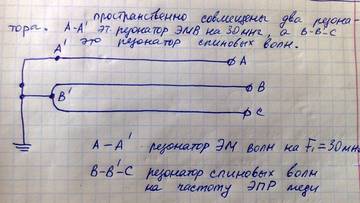 пространственно совмещены два резона-
тора. A-A' эт. резонатор ЭМВ на 30 мнг, а B-B'-C
это резонатор спиновых волн.
A'
A
B
B'
C
A-A' резонатор ЭМ волн на F₁=30мн
B-B'-C резонатор спиновых волн
на частоту ЭПР меди